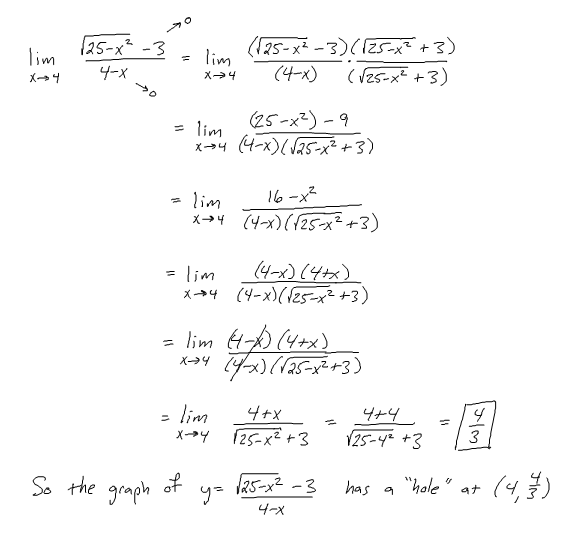 lim x→4 (√(25-x²) - 3)/(4-x) →0 →0 = lim x→4 ((√(25-x²) - 3)/(4-x)) · ((√(25-x²) + 3)/(√(25-x²) + 3))
= lim x→4 ((25-x²) - 9)/((4-x)(√(25-x²) + 3))
= lim x→4 (16-x²)/((4-x)(√(25-x²) + 3))
= lim x→4 ((4-x)(4+x))/((4-x)(√(25-x²) + 3))
= lim x→4 ((4-x)(4+x))/((4-x)(√(25-x²) + 3))
= lim x→4 (4+x)/(√(25-x²) + 3) = (4+4)/(√(25-4²) + 3) = 4/3
So the graph of y = (√(25-x²) - 3)/(4-x) has a "hole" at (4, 4/3)